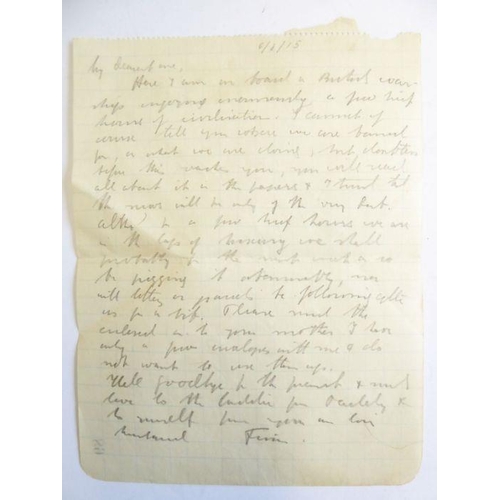 6/6/15
My Dearest one,
Here I am on board a British war-
ship enjoying immensely a few brief
hours of civilization. I cannot of
course tell you where we are bound
for, or what we are doing, but doubtless
before this reaches you, you will read
all about it in the papers & I trust that
the news will be only of the very best.
Altho' for a few brief hours we are
in the lap of luxury we shall
probably for the next week or so
be pigging it abominably, nor
will letters or parcels be following after
us for a bit. Please send the
enclosed on to your mother I have
only a few envelopes with me & do
not want to use them up.
Well goodbye for the present & much
love to the laddie from Daddy &
to yourself from your own
husband